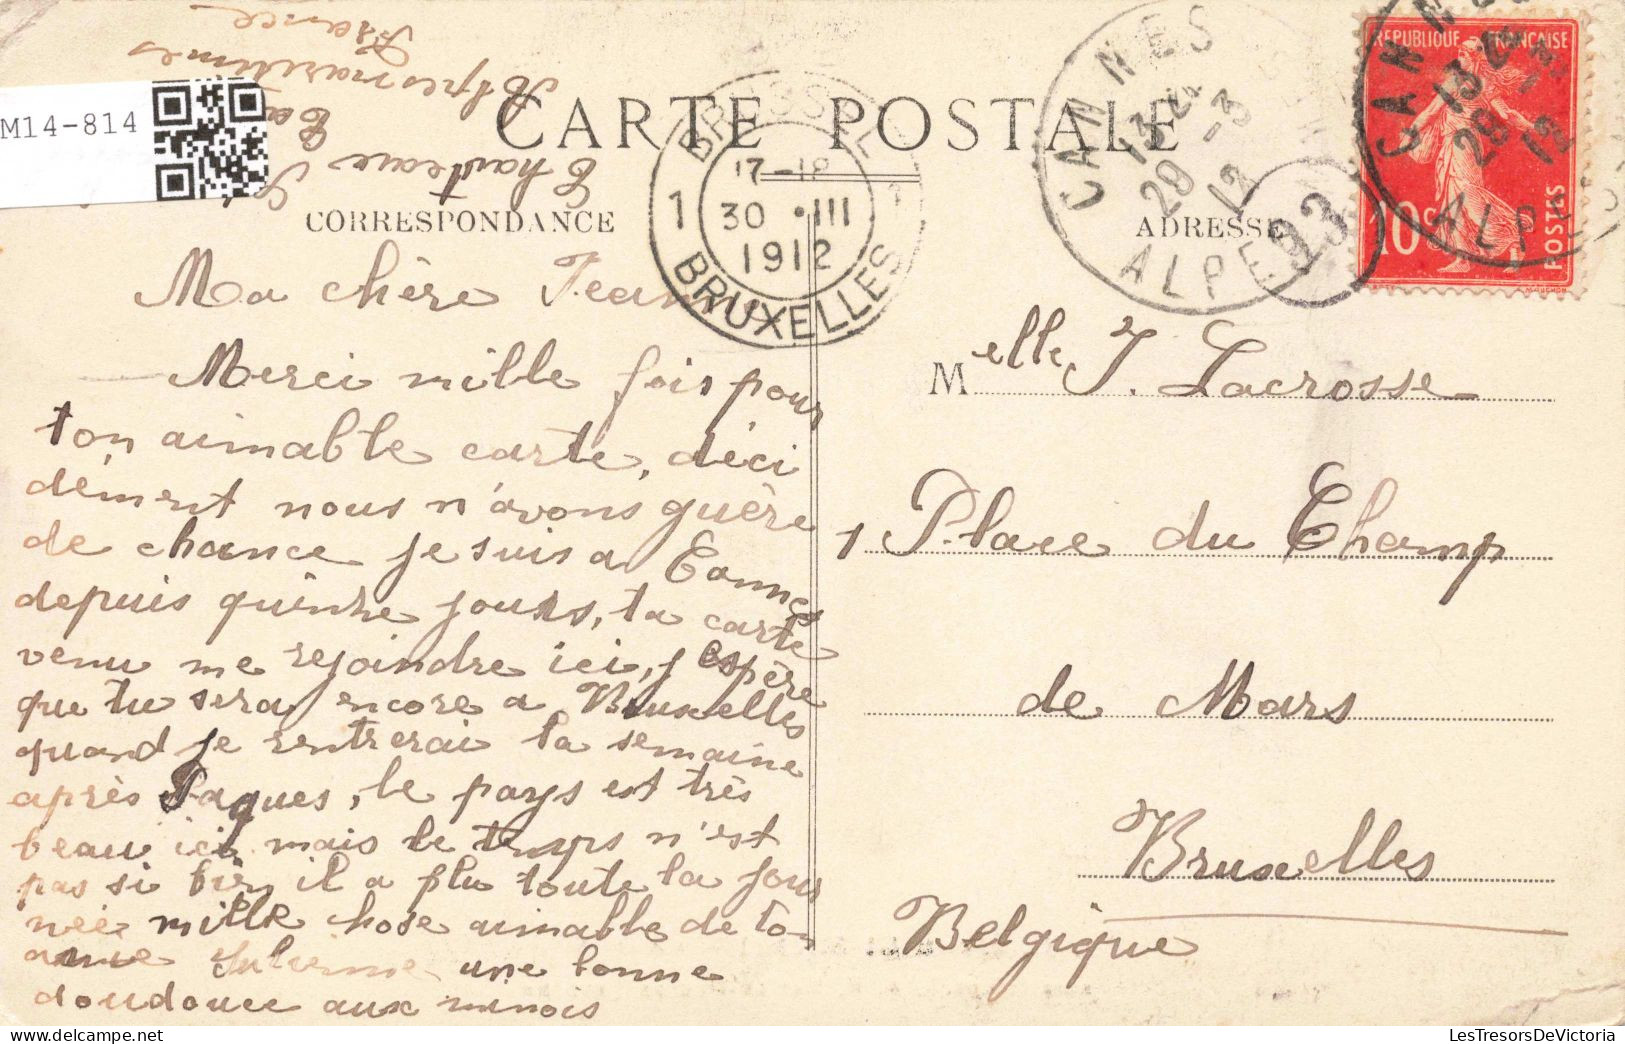 Alpes maritimes
France
M14-814
CARTE POSTALE
CORRESPONDANCE
ADRESSE
BRUSSEL
17-18
1 30 • III 1
1912
BRUXELLES
CANNES
13 24
29 -3
12
ALPES
93
REPUBLIQUE FRANÇAISE
10c
POSTES
CANNES
13 24
29 -3
12
ALPES
Ma chère Jeanne
Merci mille fois pour
ton aimable carte, déci
dément nous n'avons guère
de chance je suis a Cannes
depuis quinze jours, ta carte
venu me rejoindre ici, j espère
que tu sera encore a Bruxelles
quand je rentrerai la semaine
après Paques, le pays est très
beau ici mais le temps n'est
pas si bien il a plu toute la jour
née mille chose aimable de ton
amie une bonne
doudouce aux minois
Melle J. Lacrosse
1 Place du Champ
de Mars
Bruxelles
Belgique
LesTresorsDeVictoria